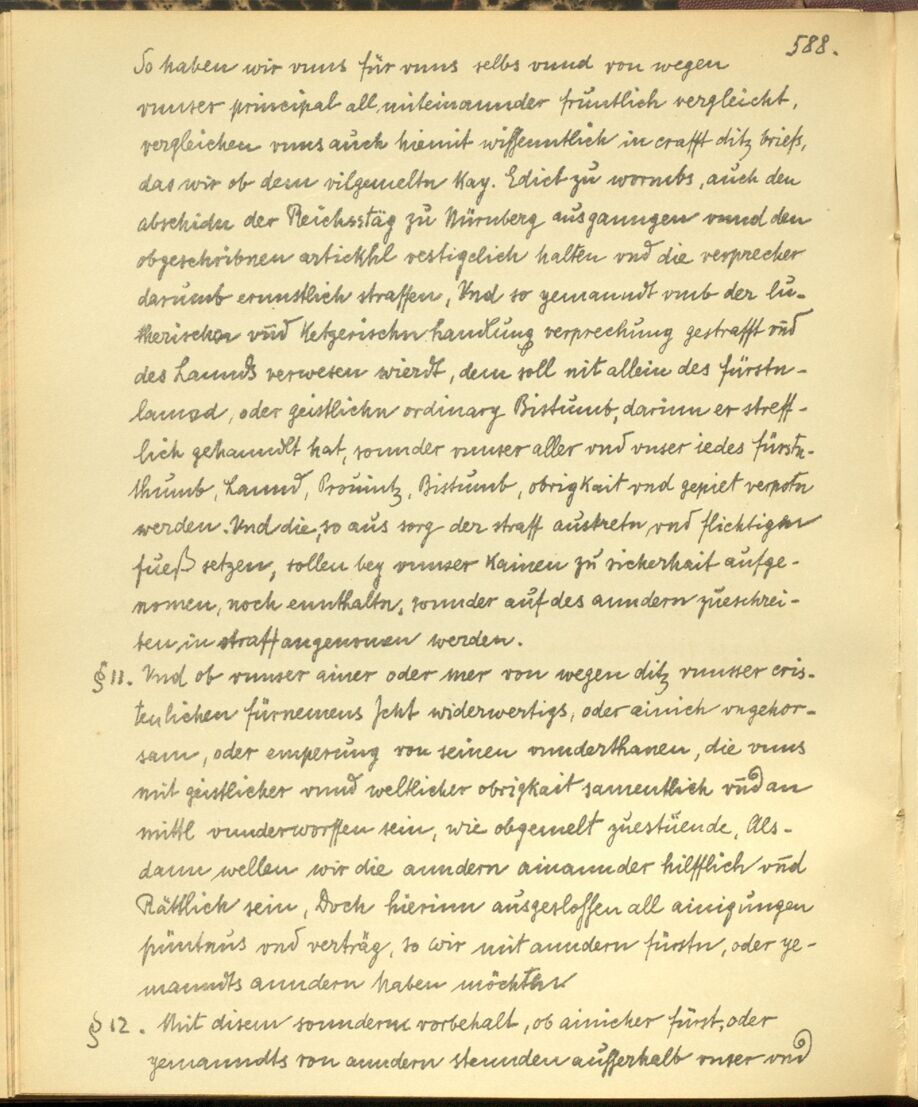 588.
So haben wir vnns für vnns selbs vnnd von wegen
vnnser principal all miteinannder fruntlich vergleicht,
vergleichen vnns auch hiemit wissenntlich in crafft ditz briefs,
das wir ob dem vilgemeltn Kay. Edict zu wormbs, auch den
abschidn der Reichsstäg zu Nürnberg ausganngen vnnd den
obgeschribnen artickhl vestigclich halten vnd die verprecher
darumb ernnstlich straffen, Vnd so yemanndt vmb der lu-
therischen vnd Ketzerischn handlung verprechung gestrafft vnd
des Lannds verwesen wierdt, dem soll nit allein des fürstn-
lannd, oder geistlichn ordinary Bistumb, darinn er streff-
lich gehanndlt hat, sonnder vnnser aller vnd vnser iedes fürstn-
thumb, Lannd, Prouintz, Bistumb, obrigkait vnd gepiet verpotn
werden. Vnd die, so aus sorg der straff austretn, vnd flichtign
fueß setzen, sollen bey vnnser Kainen zu sicherhait aufge-
nomen, noch ennthaltn, sonnder auf des anndern zueschrei-
ben, in straff angenomen werden.
§ 11. Vnd ob vnnser ainer oder mer von wegen ditz vnnsser cris-
tenlichen fürnemens Icht widerwertigs, oder ainich vngehor-
sam, oder emperung von seinen vnnderthanen, die vnns
mit geistlicher vnnd weltlicher obrigkait samentlich vnd an
mittl vnnderworffen sein, wie obgemelt zuestüende, Als-
dann wellen wir die anndern ainannder hilfflich vnd
Rättlich sein, Doch hierinn ausgeslossen all ainigungen
püntnus vnd verträg, so wir mit anndern fürstn, oder ye-
manndts anndern haben möchtn
§ 12. Mit disem sonnderm vorbehalt, ob ainicher fürst, oder
yemanndts von anndern stennden ausserhalb vnser vnd